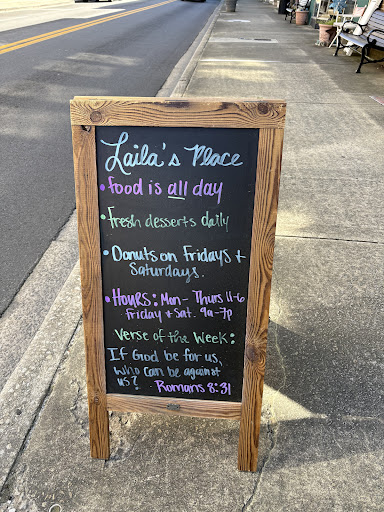 Laila's Place
• Food is all day
• Fresh desserts daily
• Donuts on Fridays +
Saturdays.
• Hours: Mon - Thurs 11-6
Friday + Sat. 9a-7p
Verse of the Week:
If God be for us,
who can be against
us? Romans 8:31